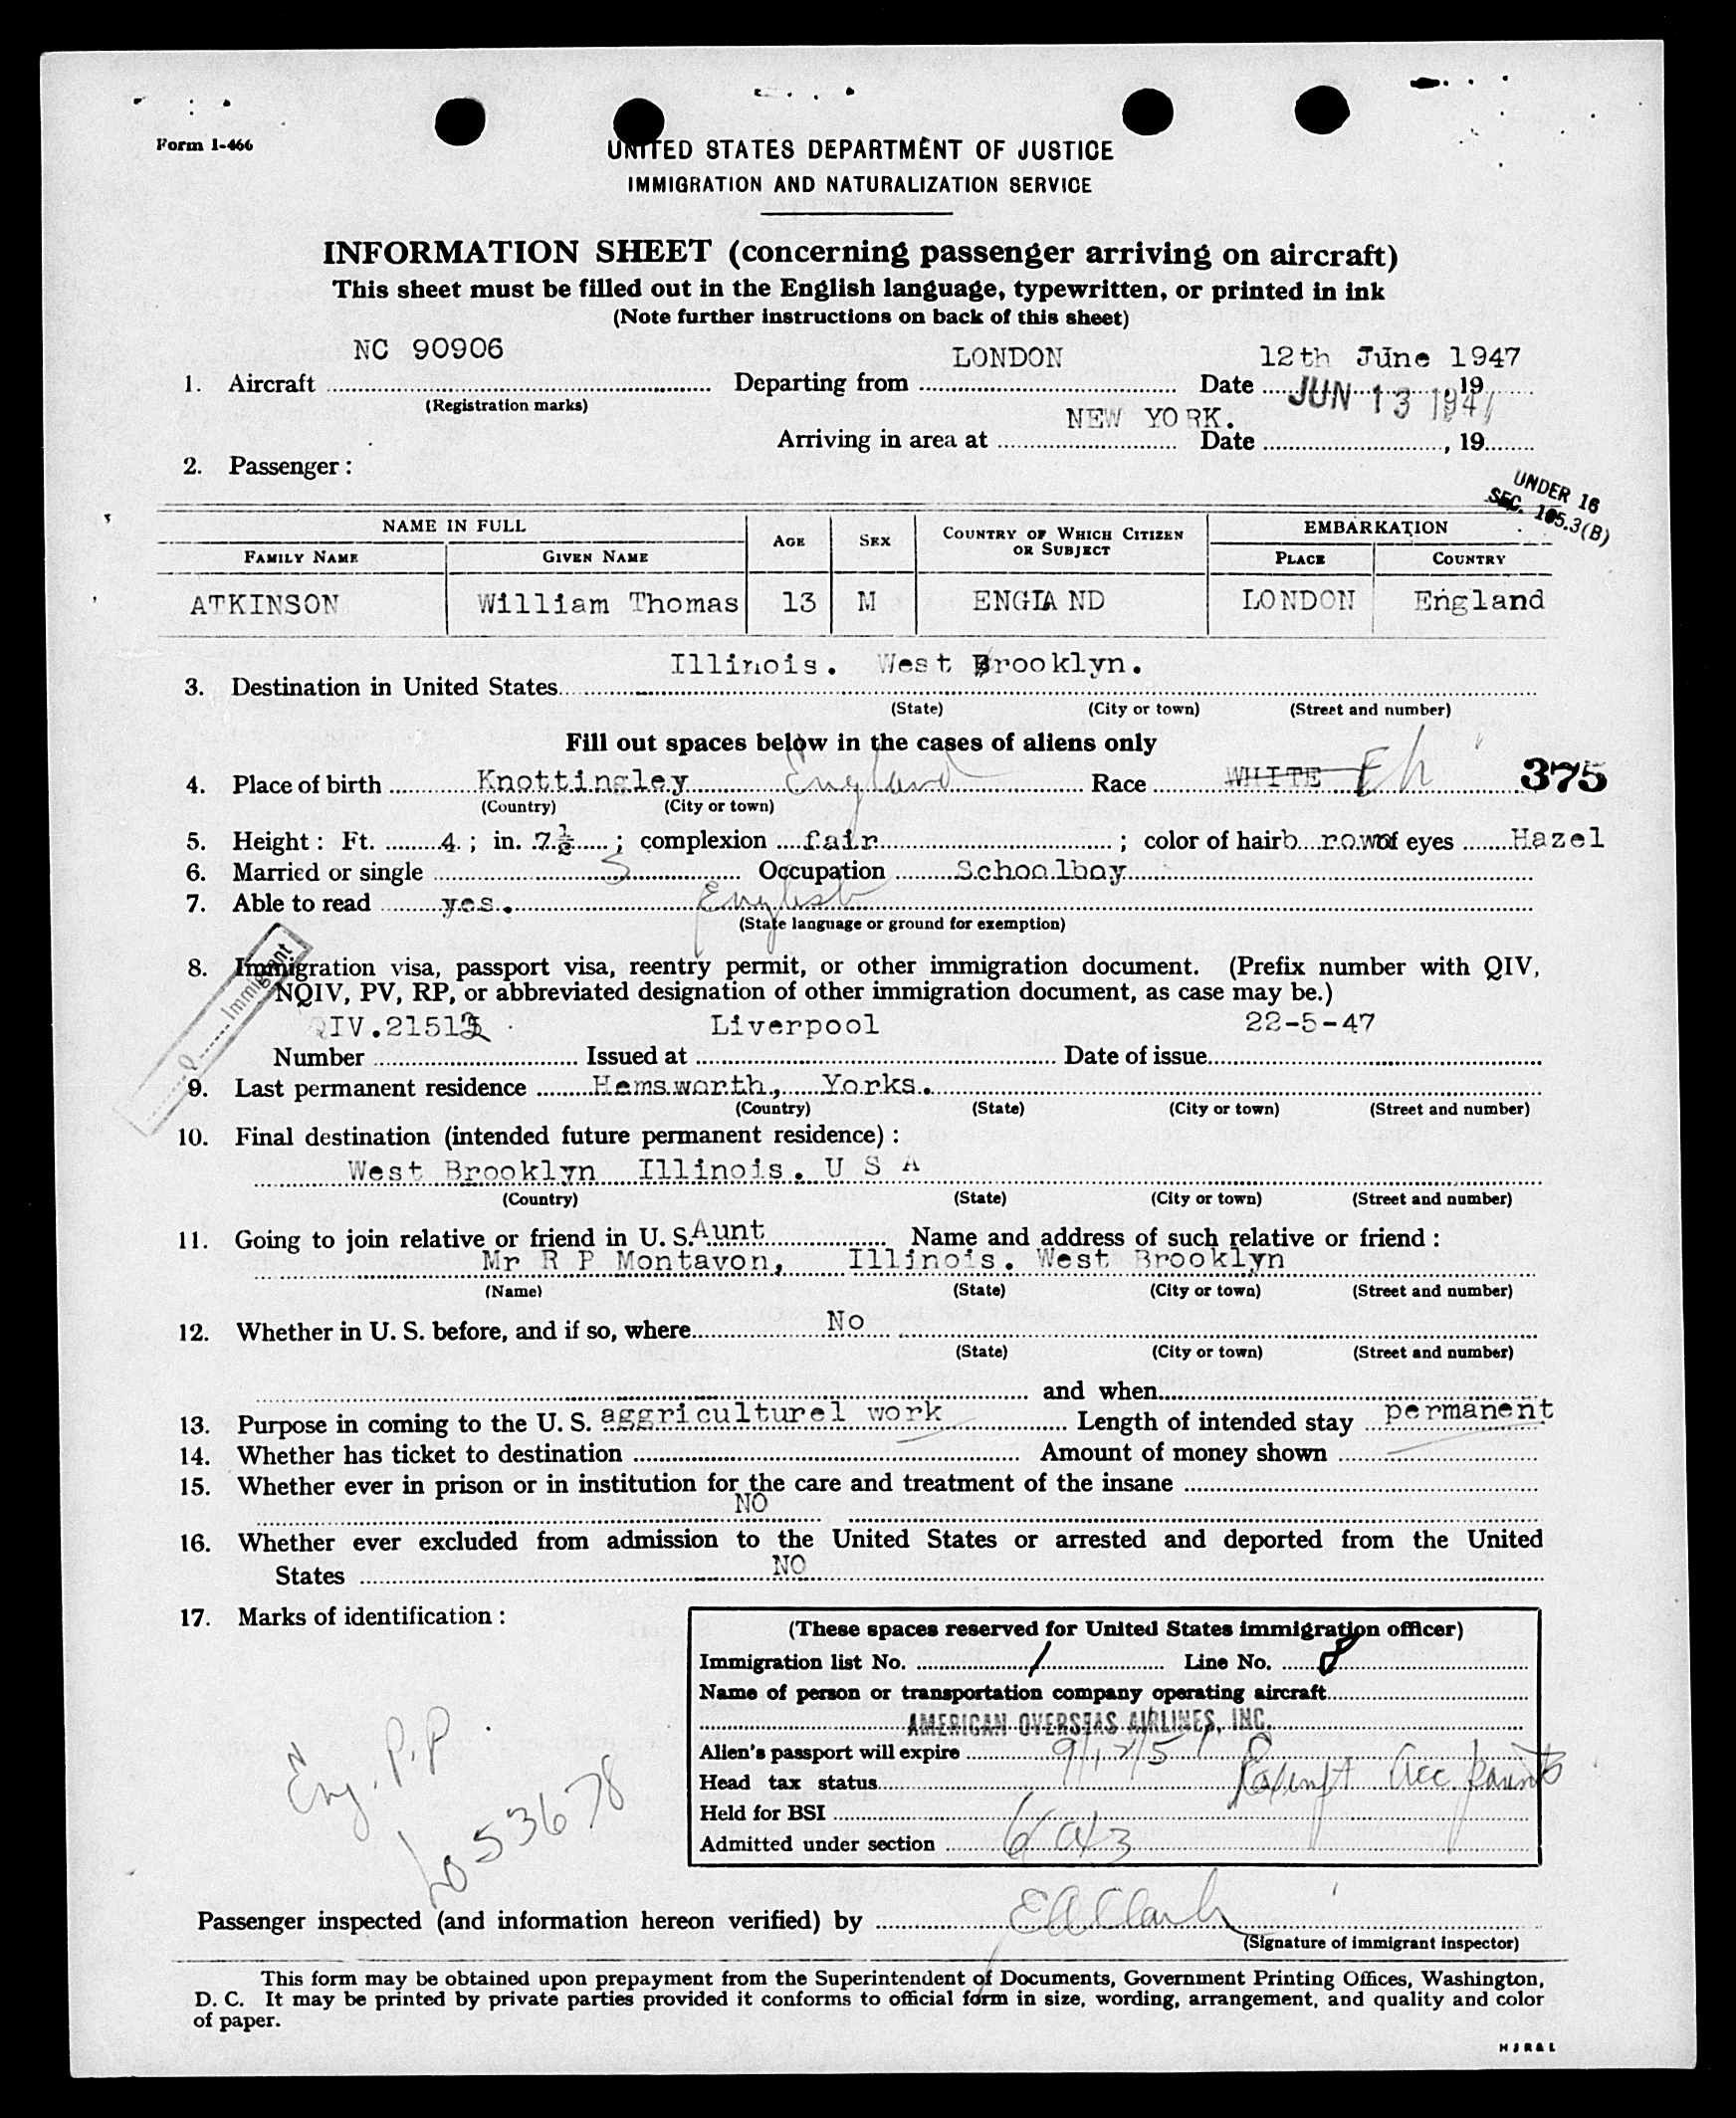 Form I-466
UNITED STATES DEPARTMENT OF JUSTICE
IMMIGRATION AND NATURALIZATION SERVICE
INFORMATION SHEET (concerning passenger arriving on aircraft)
This sheet must be filled out in the English language, typewritten, or printed in ink
(Note further instructions on back of this sheet)
NC 90906 LONDON 12th June 1947
1. Aircraft Departing from Date 19
(Registration marks) JUN 13 1947
NEW YORK.
Arriving in area at Date , 19
2. Passenger:
UNDER 16
SEC. 105.3(B)
NAME IN FULL AGE SEX COUNTRY OF WHICH CITIZEN OR SUBJECT EMBARKATION
FAMILY NAME GIVEN NAME PLACE COUNTRY
ATKINSON William Thomas 13 M ENGLAND LONDON England
Illinois. West Brooklyn.
3. Destination in United States
(State) (City or town) (Street and number)
Fill out spaces below in the cases of aliens only
4. Place of birth Knottingley England Race WHITE 375
(Country) (City or town)
5. Height: Ft. 4 ; in. 7½ ; complexion fair ; color of hair brown of eyes Hazel
6. Married or single S Occupation Schoolboy
7. Able to read yes. English
(State language or ground for exemption)
Q Immigrant
8. Immigration visa, passport visa, reentry permit, or other immigration document. (Prefix number with QIV,
NQIV, PV, RP, or abbreviated designation of other immigration document, as case may be.)
QIV.21512 Liverpool 22-5-47
Number Issued at Date of issue
9. Last permanent residence Hemsworth, Yorks.
(Country) (State) (City or town) (Street and number)
10. Final destination (intended future permanent residence):
West Brooklyn Illinois. U S A
(Country) (State) (City or town) (Street and number)
11. Going to join relative or friend in U. S. Aunt Name and address of such relative or friend:
Mr R P Montavon, Illinois. West Brooklyn
(Name) (State) (City or town) (Street and number)
12. Whether in U. S. before, and if so, where No
(State) (City or town) (Street and number)
and when
13. Purpose in coming to the U. S. aggriculturel work Length of intended stay permanent
14. Whether has ticket to destination Amount of money shown
15. Whether ever in prison or in institution for the care and treatment of the insane
NO
16. Whether ever excluded from admission to the United States or arrested and deported from the United
States NO
17. Marks of identification:
(These spaces reserved for United States immigration officer)
Immigration list No. 1 Line No. 8
Name of person or transportation company operating aircraft
AMERICAN OVERSEAS AIRLINES, INC.
Alien's passport will expire
Head tax status Exempt
Held for BSI
Admitted under section 6 a 3
Eng. P.P.
Passenger inspected (and information hereon verified) by E A Clark
(Signature of immigrant inspector)
This form may be obtained upon prepayment from the Superintendent of Documents, Government Printing Offices, Washington,
D. C. It may be printed by private parties provided it conforms to official form in size, wording, arrangement, and quality and color
of paper.